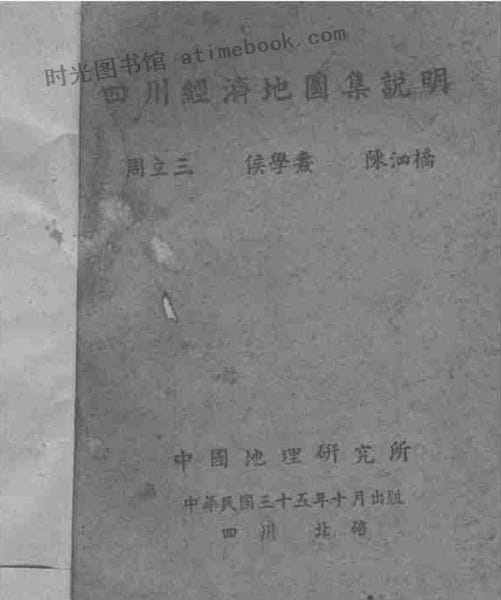 时光图书馆 atimebook.com
四川經濟地圖集説明
周立三 侯學燾 陳泗橋
中國地理研究所
中華民國三十五年十月出版
四川 北碚